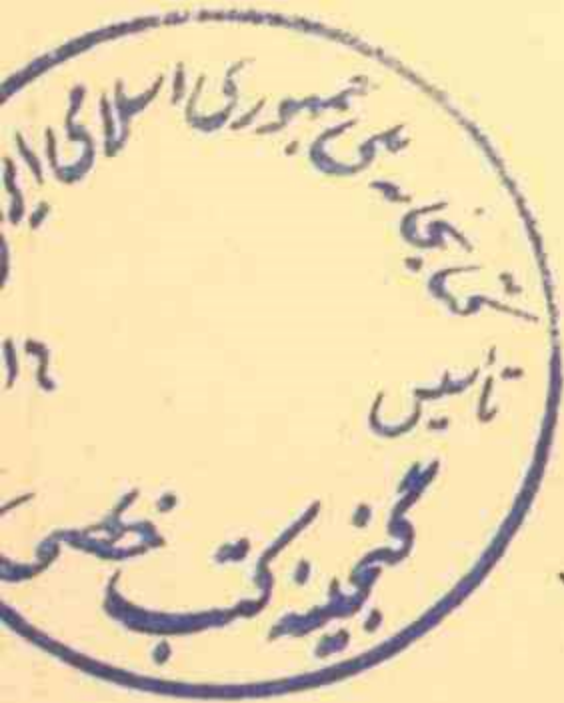 کتابخانه ملی جمهوری اسلامی ایر
تأسیس
۱۶
گنجینه کتب خطی